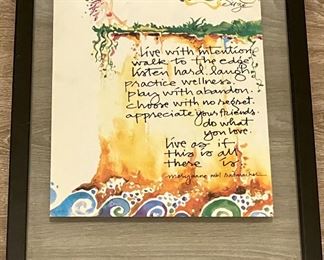 live with intention.
walk to the edge.
listen hard. laugh.
practice wellness.
play with abandon.
choose with no regret.
appreciate your friends.
do what
you love.
live as if
this is all
there is.
maryanne